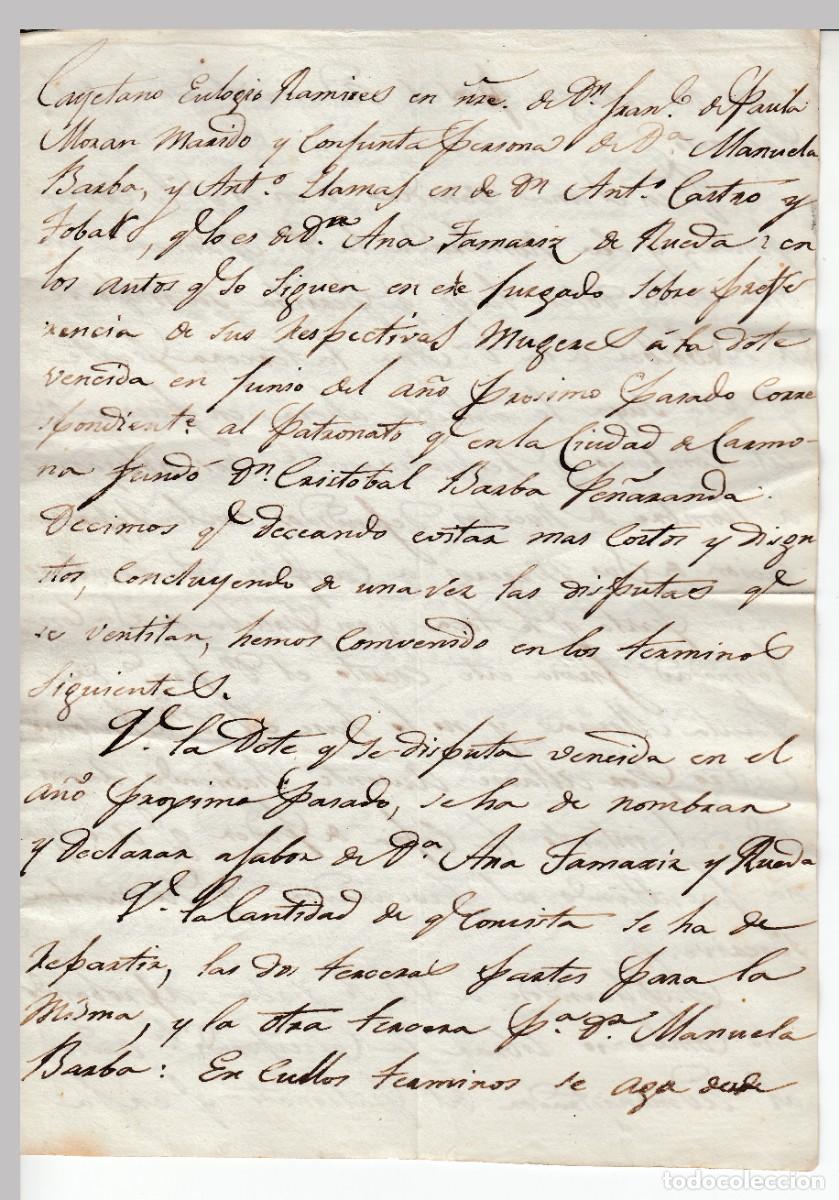 Cayetano Eulogio Ramires en nre. de Dn. Franco. de Paula
Moran Marido y Conjunta Persona de Da Manuela
Barba, y Anto. Llamas en de Dn Anto. Castro y
Tobar, q.e lo es de Da. Ana Tamariz de Rueda: en
los autos q.e se siguen en este Jurgado sobre prefe
rencia de sus respectivas Mugeres á la dote
vencida en Junio del año procsimo pasado Corre
spondiente. al Patronato q.e en la Ciudad de Carmo-
na fundó Dn. Cristobal Barba Peñaranda.
Decimos q.e deceando evitar mas Costos y disgu
stos, Concluyendo de una vez las disputas q.e
se ventilan, hemos Comvenido en los terminos
Siguientes.
Q.e la Dote q.e se disputa vencida en el
año proximo pasado, se ha de nombrar
y declarar afabor de Da. Ana Tamariz y Rueda
Q.e la Cantidad de q.e Concista se ha de
repartir, las dos terceras partes para la
Mesma, y la otra tercera pa. Da. Manuela
Barba: En Cullos terminos se aga desde
todocoleccion